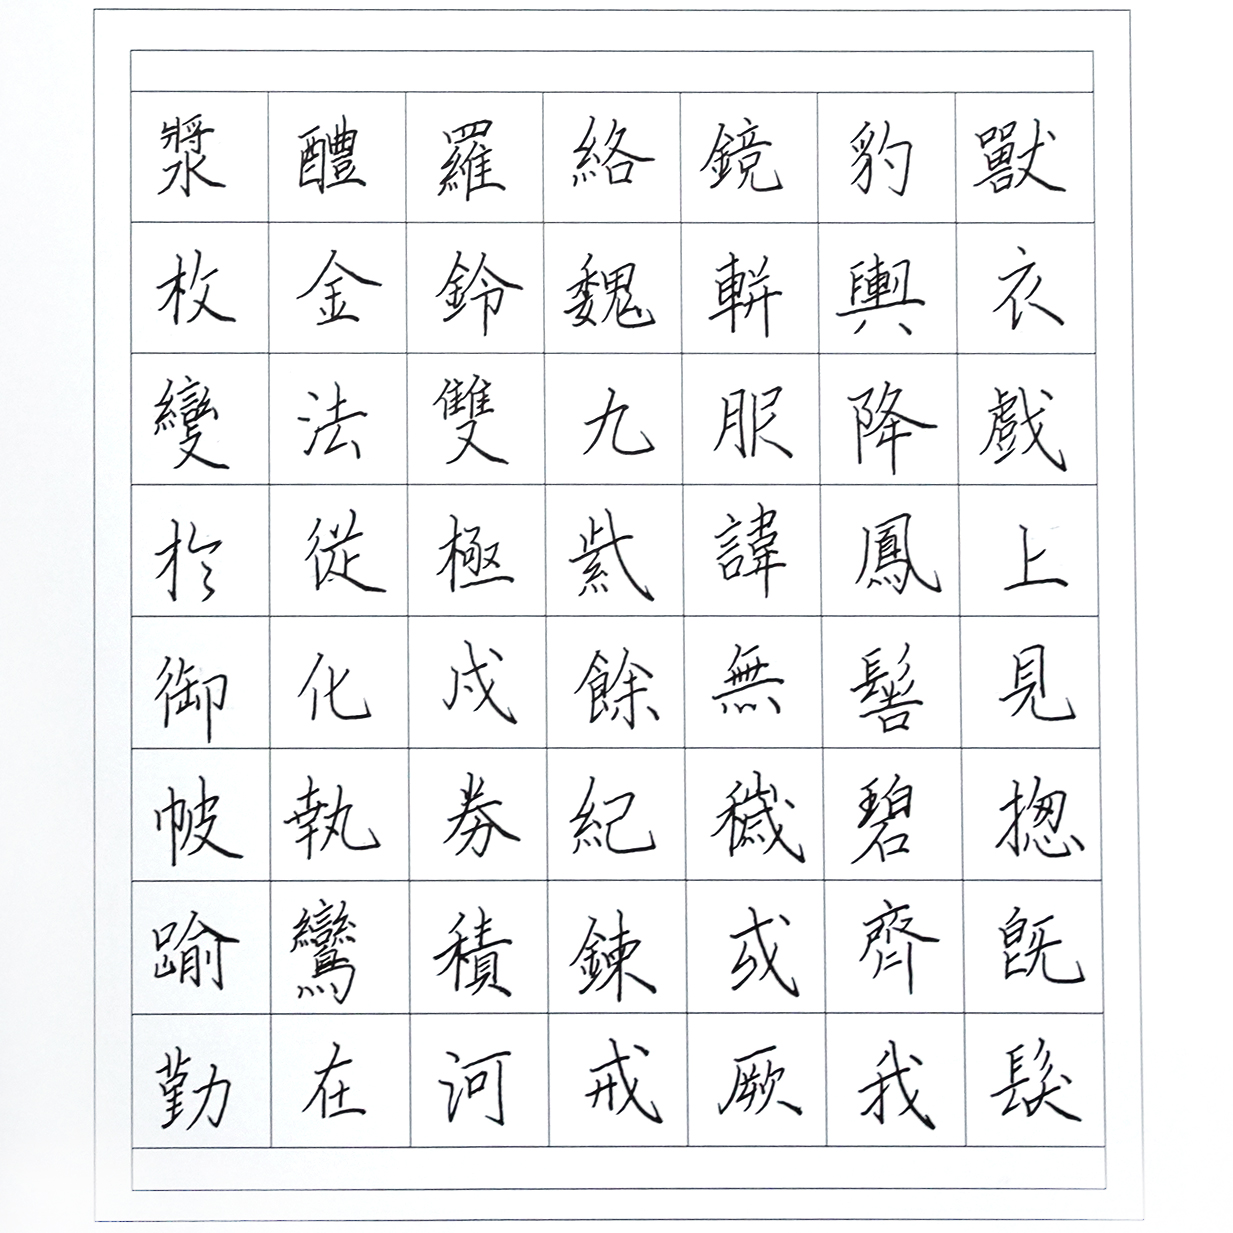 獸衣戲上見揔既髮
豹輿降鳳髻碧齊我
鏡軿服諱無穢或厥
絡魏九紫餘紀鍊戒
羅鈴雙極戍券積河
醴金法從化執鸞在
漿枚變於御帔踰勤